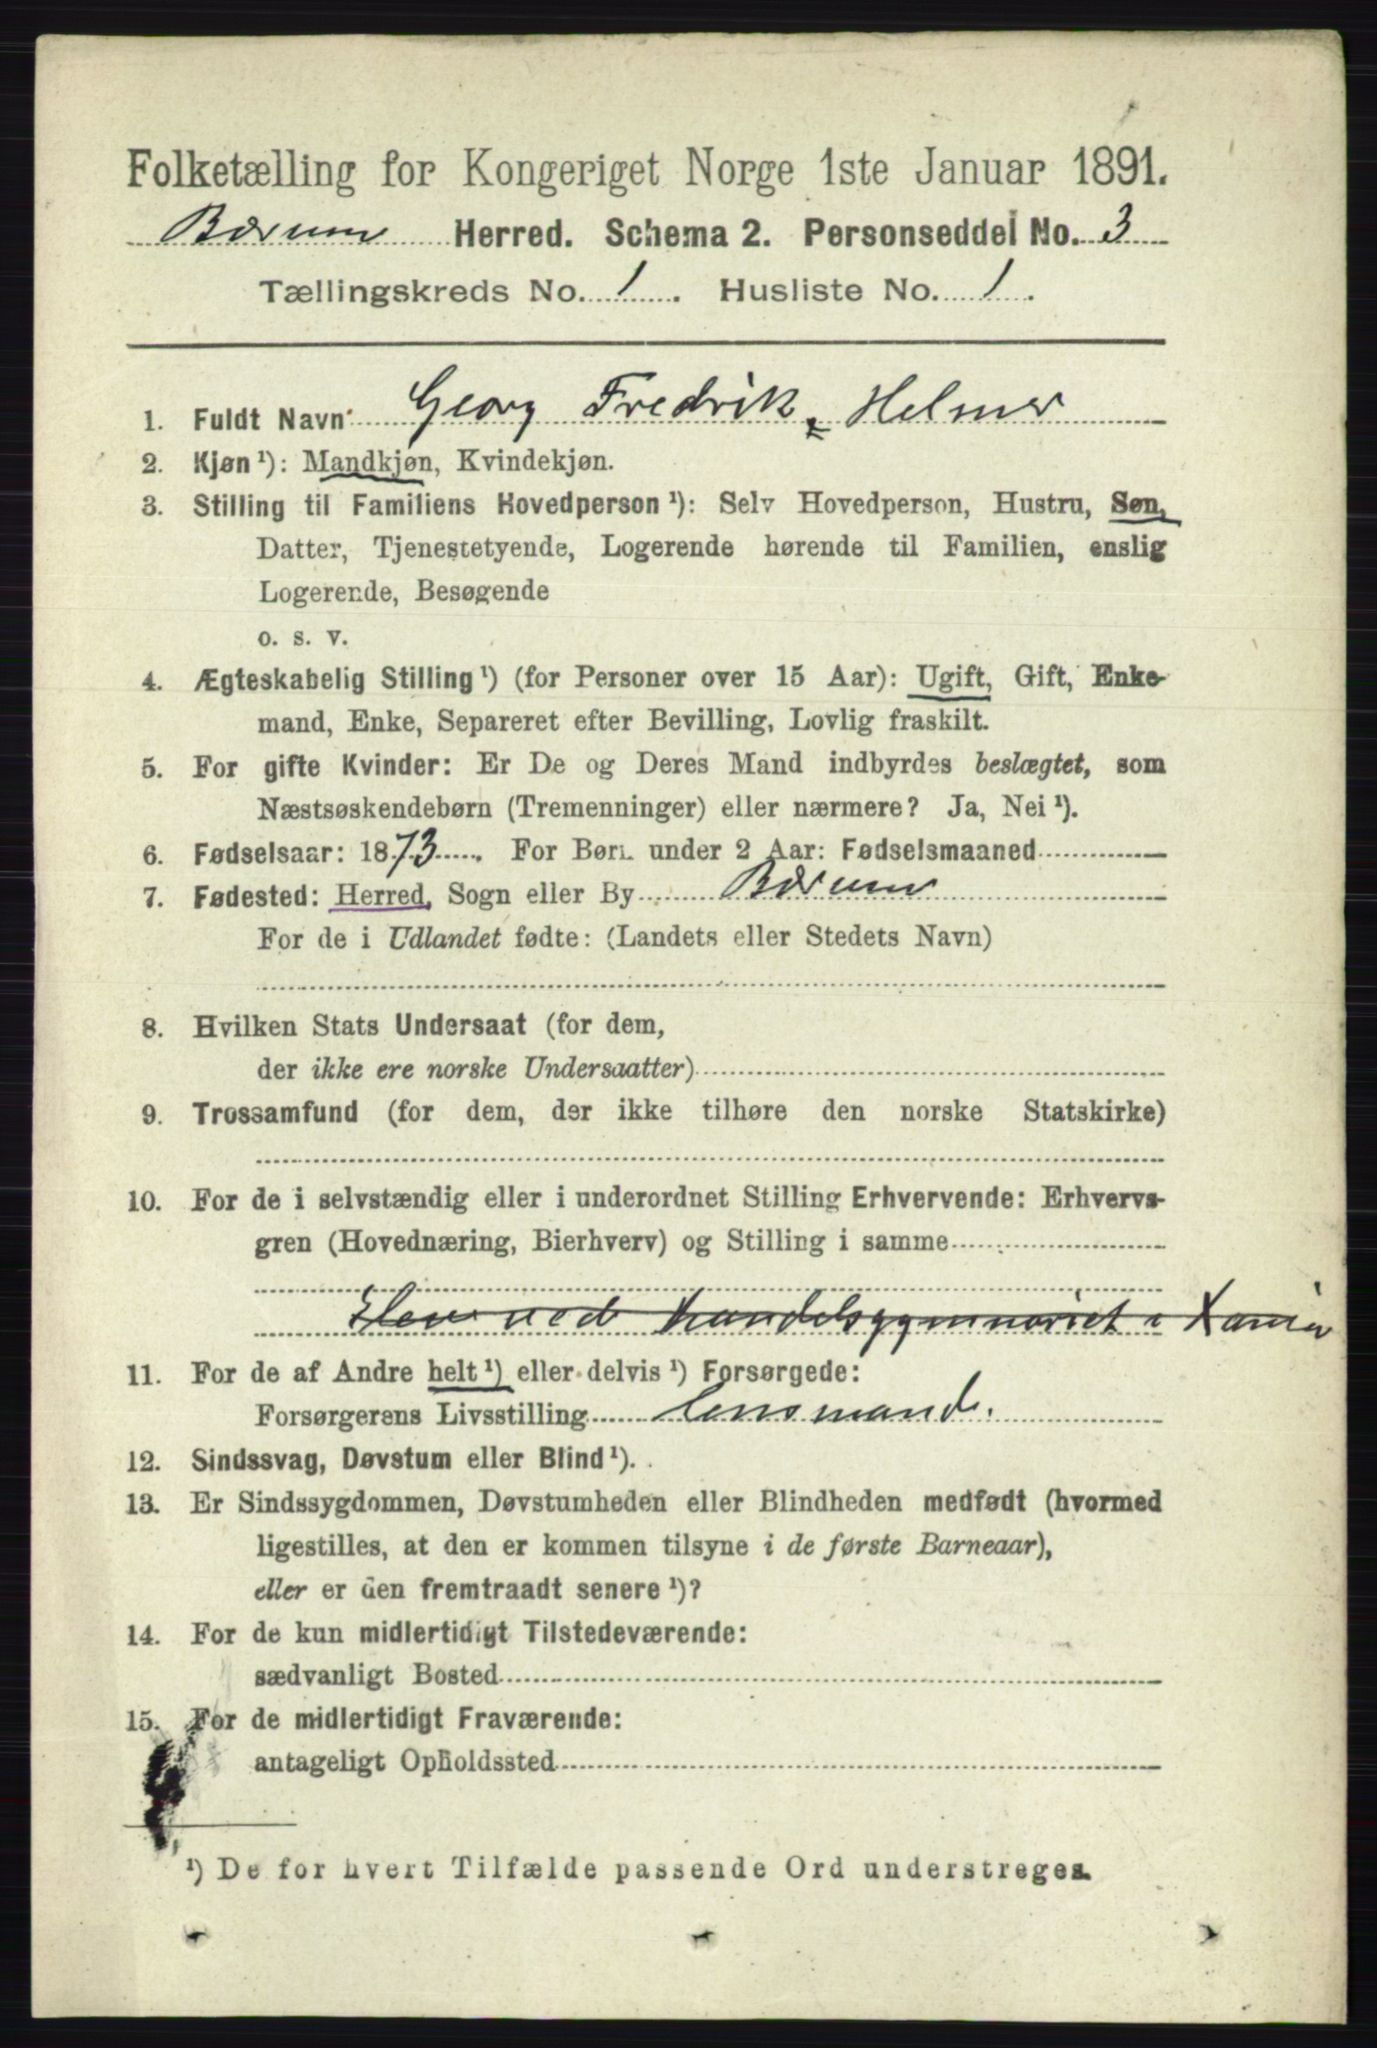 Folketælling for Kongeriget Norge 1ste Januar 1891.
Bærum Herred. Schema 2. Personseddel No. 3
Tællingskreds No. 1. Husliste No. 1.
1. Fuldt Navn: Georg Fredrik Helmer
2. Kjøn¹): Mandkjøn, Kvindekjøn.
3. Stilling til Familiens Hovedperson¹): Selv Hovedperson, Hustru, Søn,
Datter, Tjenestetyende, Logerende hørende til Familien, enslig
Logerende, Besøgende
o. s. v.
4. Ægteskabelig Stilling¹) (for Personer over 15 Aar): Ugift, Gift, Enke-
mand, Enke, Separeret efter Bevilling, Lovlig fraskilt.
5. For gifte Kvinder: Er De og Deres Mand indbyrdes beslægtet, som
Næstsøskendebørn (Tremenninger) eller nærmere? Ja, Nei¹).
6. Fødselsaar: 1873. For Børn under 2 Aar: Fødselsmaaned
7. Fødested: Herred, Sogn eller By Bærum
For de i Udlandet fødte: (Landets eller Stedets Navn)
8. Hvilken Stats Undersaat (for dem,
der ikke ere norske Undersaatter)
9. Trossamfund (for dem, der ikke tilhøre den norske Statskirke)
10. For de i selvstændig eller i underordnet Stilling Erhvervende: Erhvervs-
gren (Hovednæring, Bierhverv) og Stilling i samme
Elev ved Handelsgymnasiet i Xania
11. For de af Andre helt¹) eller delvis¹) Forsørgede:
Forsørgerens Livsstilling Lensmand.
12. Sindssvag, Døvstum eller Blind¹).
13. Er Sindssygdommen, Døvstumheden eller Blindheden medfødt (hvormed
ligestilles, at den er kommen tilsyne i de første Barneaar),
eller er den fremtraadt senere¹)?
14. For de kun midlertidigt Tilstedeværende:
sædvanligt Bosted
15. For de midlertidigt Fraværende:
antageligt Opholdssted
¹) De for hvert Tilfælde passende Ord understreges.